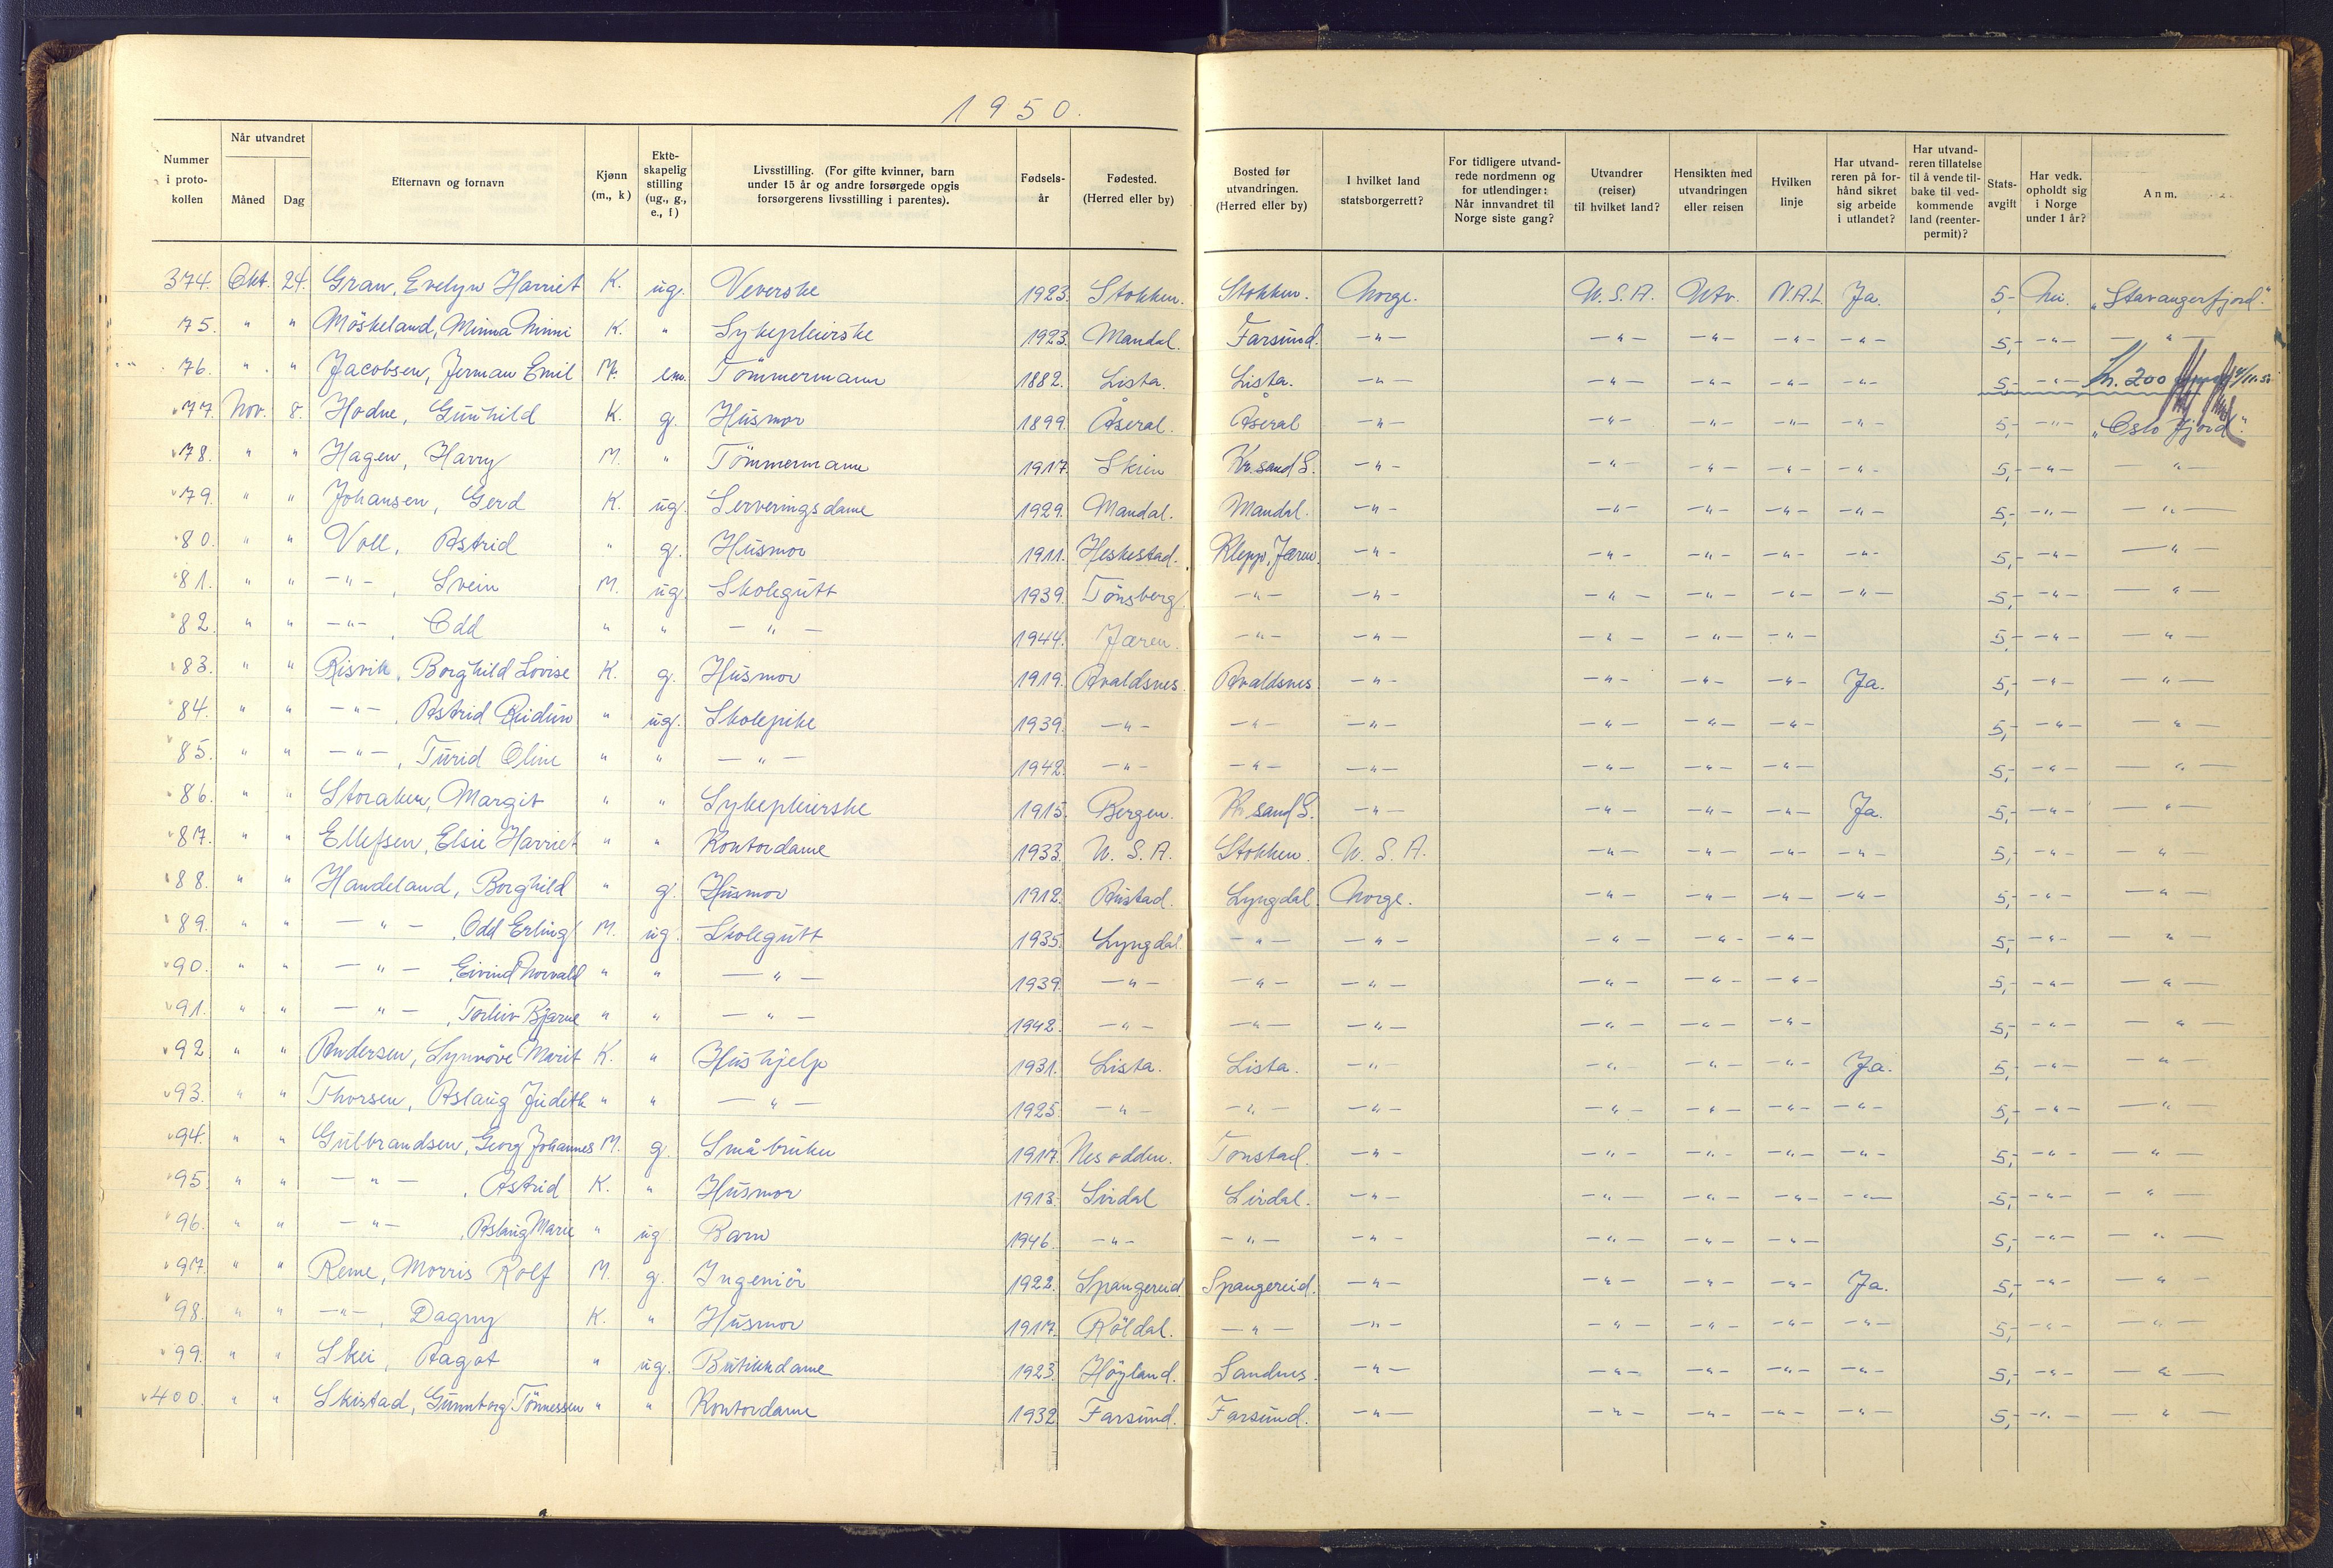 1950.
Nummer i protokollen | Når utvandret Måned | Dag | Efternavn og fornavn | Kjønn (m., k) | Ekteskapelig stilling (ug., g., e., f) | Livsstilling. (For gifte kvinner, barn under 15 år og andre forsørgede opgis forsørgerens livsstilling i parentes). | Fødselsår | Fødested. (Herred eller by) | Bosted før utvandringen. (Herred eller by) | I hvilket land statsborgerrett? | For tidligere utvandrede nordmenn og for utlendinger: Når innvandret til Norge siste gang? | Utvandrer (reiser) til hvilket land? | Hensikten med utvandringen eller reisen | Hvilken linje | Har utvandreren på forhånd sikret sig arbeide i utlandet? | Har utvandreren tillatelse til å vende tilbake til vedkommende land (reenterpermit)? | Statsavgift | Har vedk. opholdt sig i Norge under 1 år? | Anm.
374. Okt. 24. Gran, Evelyn Harriet K. ug. Veverske 1923. Stokken. Stokken. Norge. U.S.A. Utv. N.A.L. Ja. 5,- Nei. "Stavangerfjord."
75. " " Möskeland, Minna Minni K. " Sykepleierske 1923. Mandal. Farsund. -"- -"- -"- -"- -"- 5,- -"- -"-
76. " " Jacobsen, Jerman Emil M. em. Tömmermann 1882. Lista. Lista. -"- -"- -"- -"- -"- 5,- -"- Kr. 200
77. Nov. 8. Hodne, Gunhild K. g. Husmor 1899. Åseral. Åseral -"- -"- -"- -"- -"- 5,- -"- "Oslofjord".
78. " " Hagen, Harry M. " Tömmermann 1917. Skien Kr.sand S. -"- -"- -"- -"- -"- 5,- -"- -"-
79. " " Johansen, Gerd K. ug. Serveringsdame 1929. Mandal. Mandal. -"- -"- -"- -"- -"- 5,- -"- -"-
80. " " Voll, Astrid " g. Husmor 1911. Heskestad. Klepp, Jæren. -"- -"- -"- -"- -"- 5,- -"- -"-
81. " " -"-, Svein M. ug. Skolegutt 1939. Tönsberg -"- -"- -"- -"- -"- -"- 5,- -"- -"-
82. " " -"-, Odd " " -"- 1944. Jæren. -"- -"- -"- -"- -"- 5,- -"- -"-
83. " " Risvik, Borghild Lovise K. g. Husmor 1919. Avaldsnes. Avaldsnes -"- -"- -"- -"- Ja. 5,- -"- -"-
84. " " -"-, Astrid Reidun " ug. Skolepike 1939. -"- -"- -"- -"- -"- -"- 5,- -"- -"-
85. " " -"-, Turid Oline " " -"- 1942. -"- -"- -"- -"- -"- -"- 5,- -"- -"-
86. " " Storaker, Margit " " Sykepleierske 1915. Bergen. Kr.sand S. -"- -"- -"- -"- Ja. 5,- -"- -"-
87. " " Ellefsen, Elsie Harriet " " Kontordame 1933. U.S.A. Stokken. U.S.A. -"- -"- -"- -"- 5,- -"- -"-
88. " " Handeland, Borghild " g. Husmor 1912. Austad. Lyngdal Norge. -"- -"- -"- -"- 5,- -"- -"-
89. " " -"-, Odd Erling M. ug. Skolegutt 1935. Lyngdal. -"- -"- -"- -"- -"- 5,- -"- -"-
90. " " -"-, Eivind Thorvald " " -"- 1939. -"- -"- -"- -"- -"- -"- 5,- -"- -"-
91. " " -"-, Torleiv Bjarne " " -"- 1942. -"- -"- -"- -"- -"- -"- 5,- -"- -"-
92. " " Andersen, Synnöve Marit K. " Hushjelp 1931. Lista. Lista. -"- -"- -"- -"- Ja. 5,- -"- -"-
93. " " Thorsen, Aslaug Judith " " -"- 1925. -"- -"- -"- -"- -"- -"- -"- 5,- -"- -"-
94. " " Gulbrandsen, Georg Johannes M. g. Småbruker 1917. Nesodden. Tonstad. -"- -"- -"- -"- -"- 5,- -"- -"-
95. " " -"-, Astrid K. " Husmor 1913. Sirdal Sirdal. -"- -"- -"- -"- -"- 5,- -"- -"-
96. " " -"-, Aslaug Marie " ug. Barn 1946. -"- -"- -"- -"- -"- -"- 5,- -"- -"-
97. " " Reme, Morris Rolf M. g. Ingeniör 1922. Spangereid Spangereid. -"- -"- -"- -"- Ja. 5,- -"- -"-
98. " " -"-, Dagny K. " Husmor 1917. Röldal. -"- -"- -"- -"- -"- -"- 5,- -"- -"-
99. " " Skei, Aagot " ug. Butikkdame 1923. Höyland. Sandnes. -"- -"- -"- -"- -"- 5,- -"- -"-
400. " " Skistad, Gunnborg Tönnessen " " Kontordame 1932 Farsund. Farsund. -"- -"- -"- -"- -"- 5,- -"- -"-